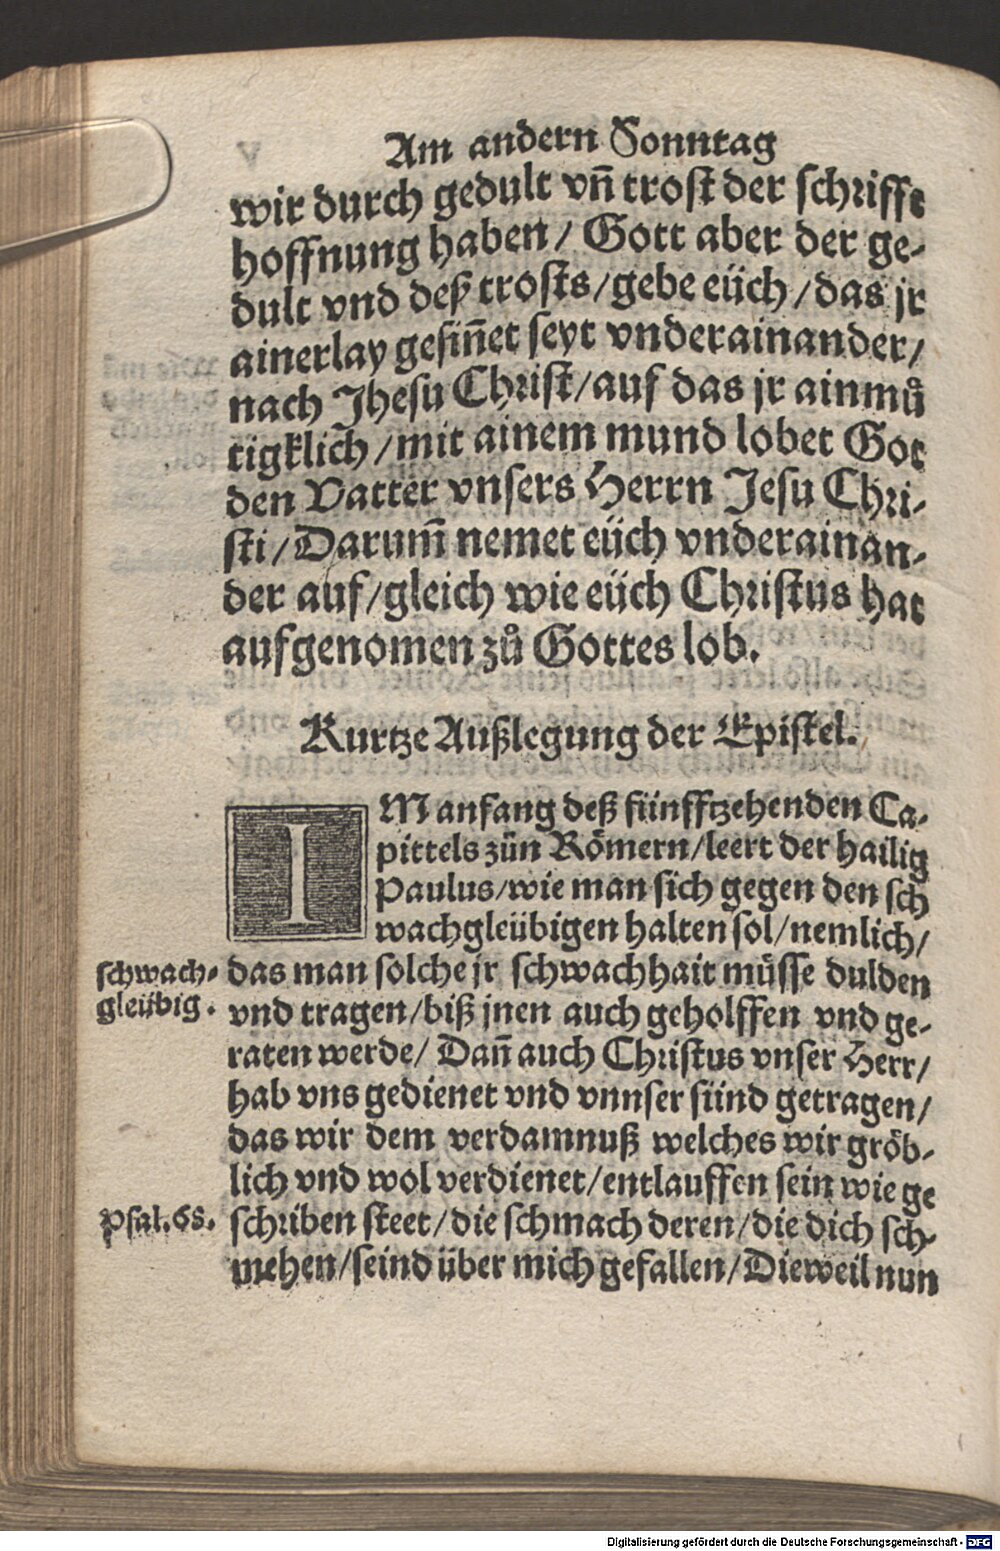 Am andern Sonntag
wir durch gedult vñ trost der schrifft
hoffnung haben / Gott aber der ge-
dult vnd deß trosts / gebe eüch / das jr
ainerlay gesiñet seyt vnderainander /
nach Jhesu Christ / auf das jr ainmuͤ
tigklich / mit ainem mund lobet Got
den Vatter vnsers Herrn Jesu Chri-
sti / Darum̃ nemet eüch vnderainan-
der auf / gleich wie eüch Christus hat
aufgenomen zů Gottes lob.
Kurtze Außlegung der Epistel.
IM anfang deß fünfftzehenden Ca-
pittels zůn Römern / leert der hailig
Paulus / wie man sich gegen den sch
wachgleübigen halten sol / nemlich /
schwach-
gleübig.
das man solche jr schwachhait müsse dulden
vnd tragen / biß jnen auch geholffen vnd ge-
raten werde / Dañ auch Christus vnser Herr /
hab vns gedienet vnd vnnser sünd getragen /
das wir dem verdamnuß welches wir gröb-
lich vnd wol verdienet / entlauffen sein wie ge
Psal. 68.
schriben steet / die schmach deren / die dich sch-
mehen / seind über mich gefallen / Dieweil nun
Digitalisierung gefördert durch die Deutsche Forschungsgemeinschaft - DFG